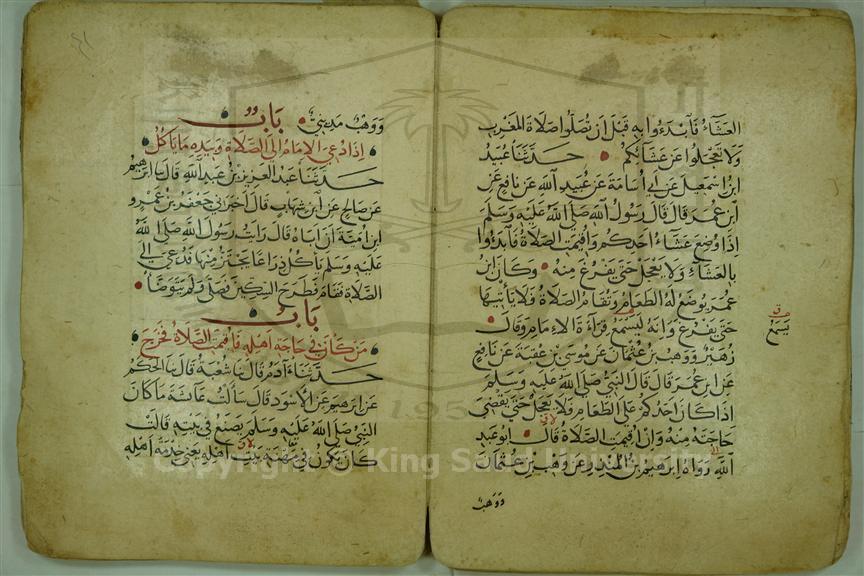 العَشَاءُ فَابْدَءُوا بِهِ قَبْلَ اَنْ تُصَلُّوا صَلَاةَ المَغْرِبِ
وَلَا تَعْجَلُوا عَنْ عَشَائِكُمْ حَدَّثَنَا عُبَيْدُ
ابنُ اسْمٰعِيلَ عَنْ اَبِي اُسَامَةَ عَنْ عُبَيْدِ اللّٰهِ عَنْ نَافِعٍ عَنِ
ابنِ عُمَرَ قَالَ قَالَ رَسُولُ اللّٰهِ صَلَّى اللّٰهُ عَلَيْهِ وَسَلَّمَ
اِذَا وُضِعَ عَشَاءُ اَحَدِكُمْ وَاُقِيمَتِ الصَّلَاةُ فَابْدَءُوا
بِالعَشَاءِ وَلَا يَعْجَلْ حَتَّى يَفْرُغَ مِنْهُ وَكَانَ ابْنُ
عُمَرَ يُوضَعُ لَهُ الطَّعَامُ وَتُقَامُ الصَّلَاةُ فَلَا يَأتِيهَا
حَتَّى يَفْرُغَ وَاِنَّهُ لَيَسْمَعُ قِرَاءَةَ الاِمَامِ وَقَالَ
يَسْمَعُ
زُهَيْرٌ وَوَهْبُ بنُ عُثْمَانَ عَنْ مُوسَى بنِ عُقْبَةَ عَنْ نَافِعٍ
عَنِ ابنِ عُمَرَ قَالَ قَالَ النَّبِيُّ صَلَّى اللّٰهُ عَلَيْهِ وَسَلَّمَ
اِذَا كَانَ اَحَدُكُمْ عَلَى الطَّعَامِ فَلَا يَعْجَلْ حَتَّى يَقْضِيَ
حَاجَتَهُ مِنْهُ وَاِنْ اُقِيمَتِ الصَّلَاةُ قَالَ اَبُو عَبْدِ
اللّٰهِ رَوَاهُ اِبْرٰهِيمُ بنُ المُنْذِرِ عَنْ وَهْبِ بنِ عُثْمَانَ
وَوَهْبٌ
وَوَهْبٌ مَدِينِيٌّ بَابٌ
اِذَا دُعِيَ الاِمَامُ اِلَى الصَّلَاةِ وَبِيَدِهِ مَا يَاكُلُ
حَدَّثَنَا عَبْدُ العَزِيزِ بنُ عَبْدِ اللّٰهِ قَالَ نَا اِبْرٰهِيمُ
عَنْ صَالِحٍ عَنِ ابنِ شِهَابٍ قَالَ اَخْبَرَنِي جَعْفَرُ بنُ عَمْرِو
ابنِ اُمَيَّةَ اَنَّ اَبَاهُ قَالَ رَاَيْتُ رَسُولَ اللّٰهِ صَلَّى اللّٰهُ
عَلَيْهِ وَسَلَّمَ يَاْكُلُ ذِرَاعًا يَحْتَزُّ مِنْهَا فَدُعِيَ اِلَى
الصَّلَاةِ فَقَامَ فَطَرَحَ السِّكِّينَ فَصَلَّى وَلَمْ يَتَوَضَّاْ
بَابُ
مَنْ كَانَ فِي حَاجَةِ اَهْلِهِ فَاُقِيمَتِ الصَّلَاةُ فَخَرَجَ
حَدَّثَنَا آدَمُ قَالَ نَا شُعْبَةُ قَالَ نَا الحَكَمُ
عَنْ اِبْرٰهِيمَ عَنِ الاَسْوَدِ قَالَ سَاَلْتُ عَائِشَةَ مَا كَانَ
النَّبِيُّ صَلَّى اللّٰهُ عَلَيْهِ وَسَلَّمَ يَصْنَعُ فِي بَيْتِهِ قَالَتْ
كَانَ يَكُونُ فِي مِهْنَةِ بَيْتِ اَهْلِهِ يَعْنِي خِدْمَةَ اَهْلِهِ
Copyright © King Saud University
195